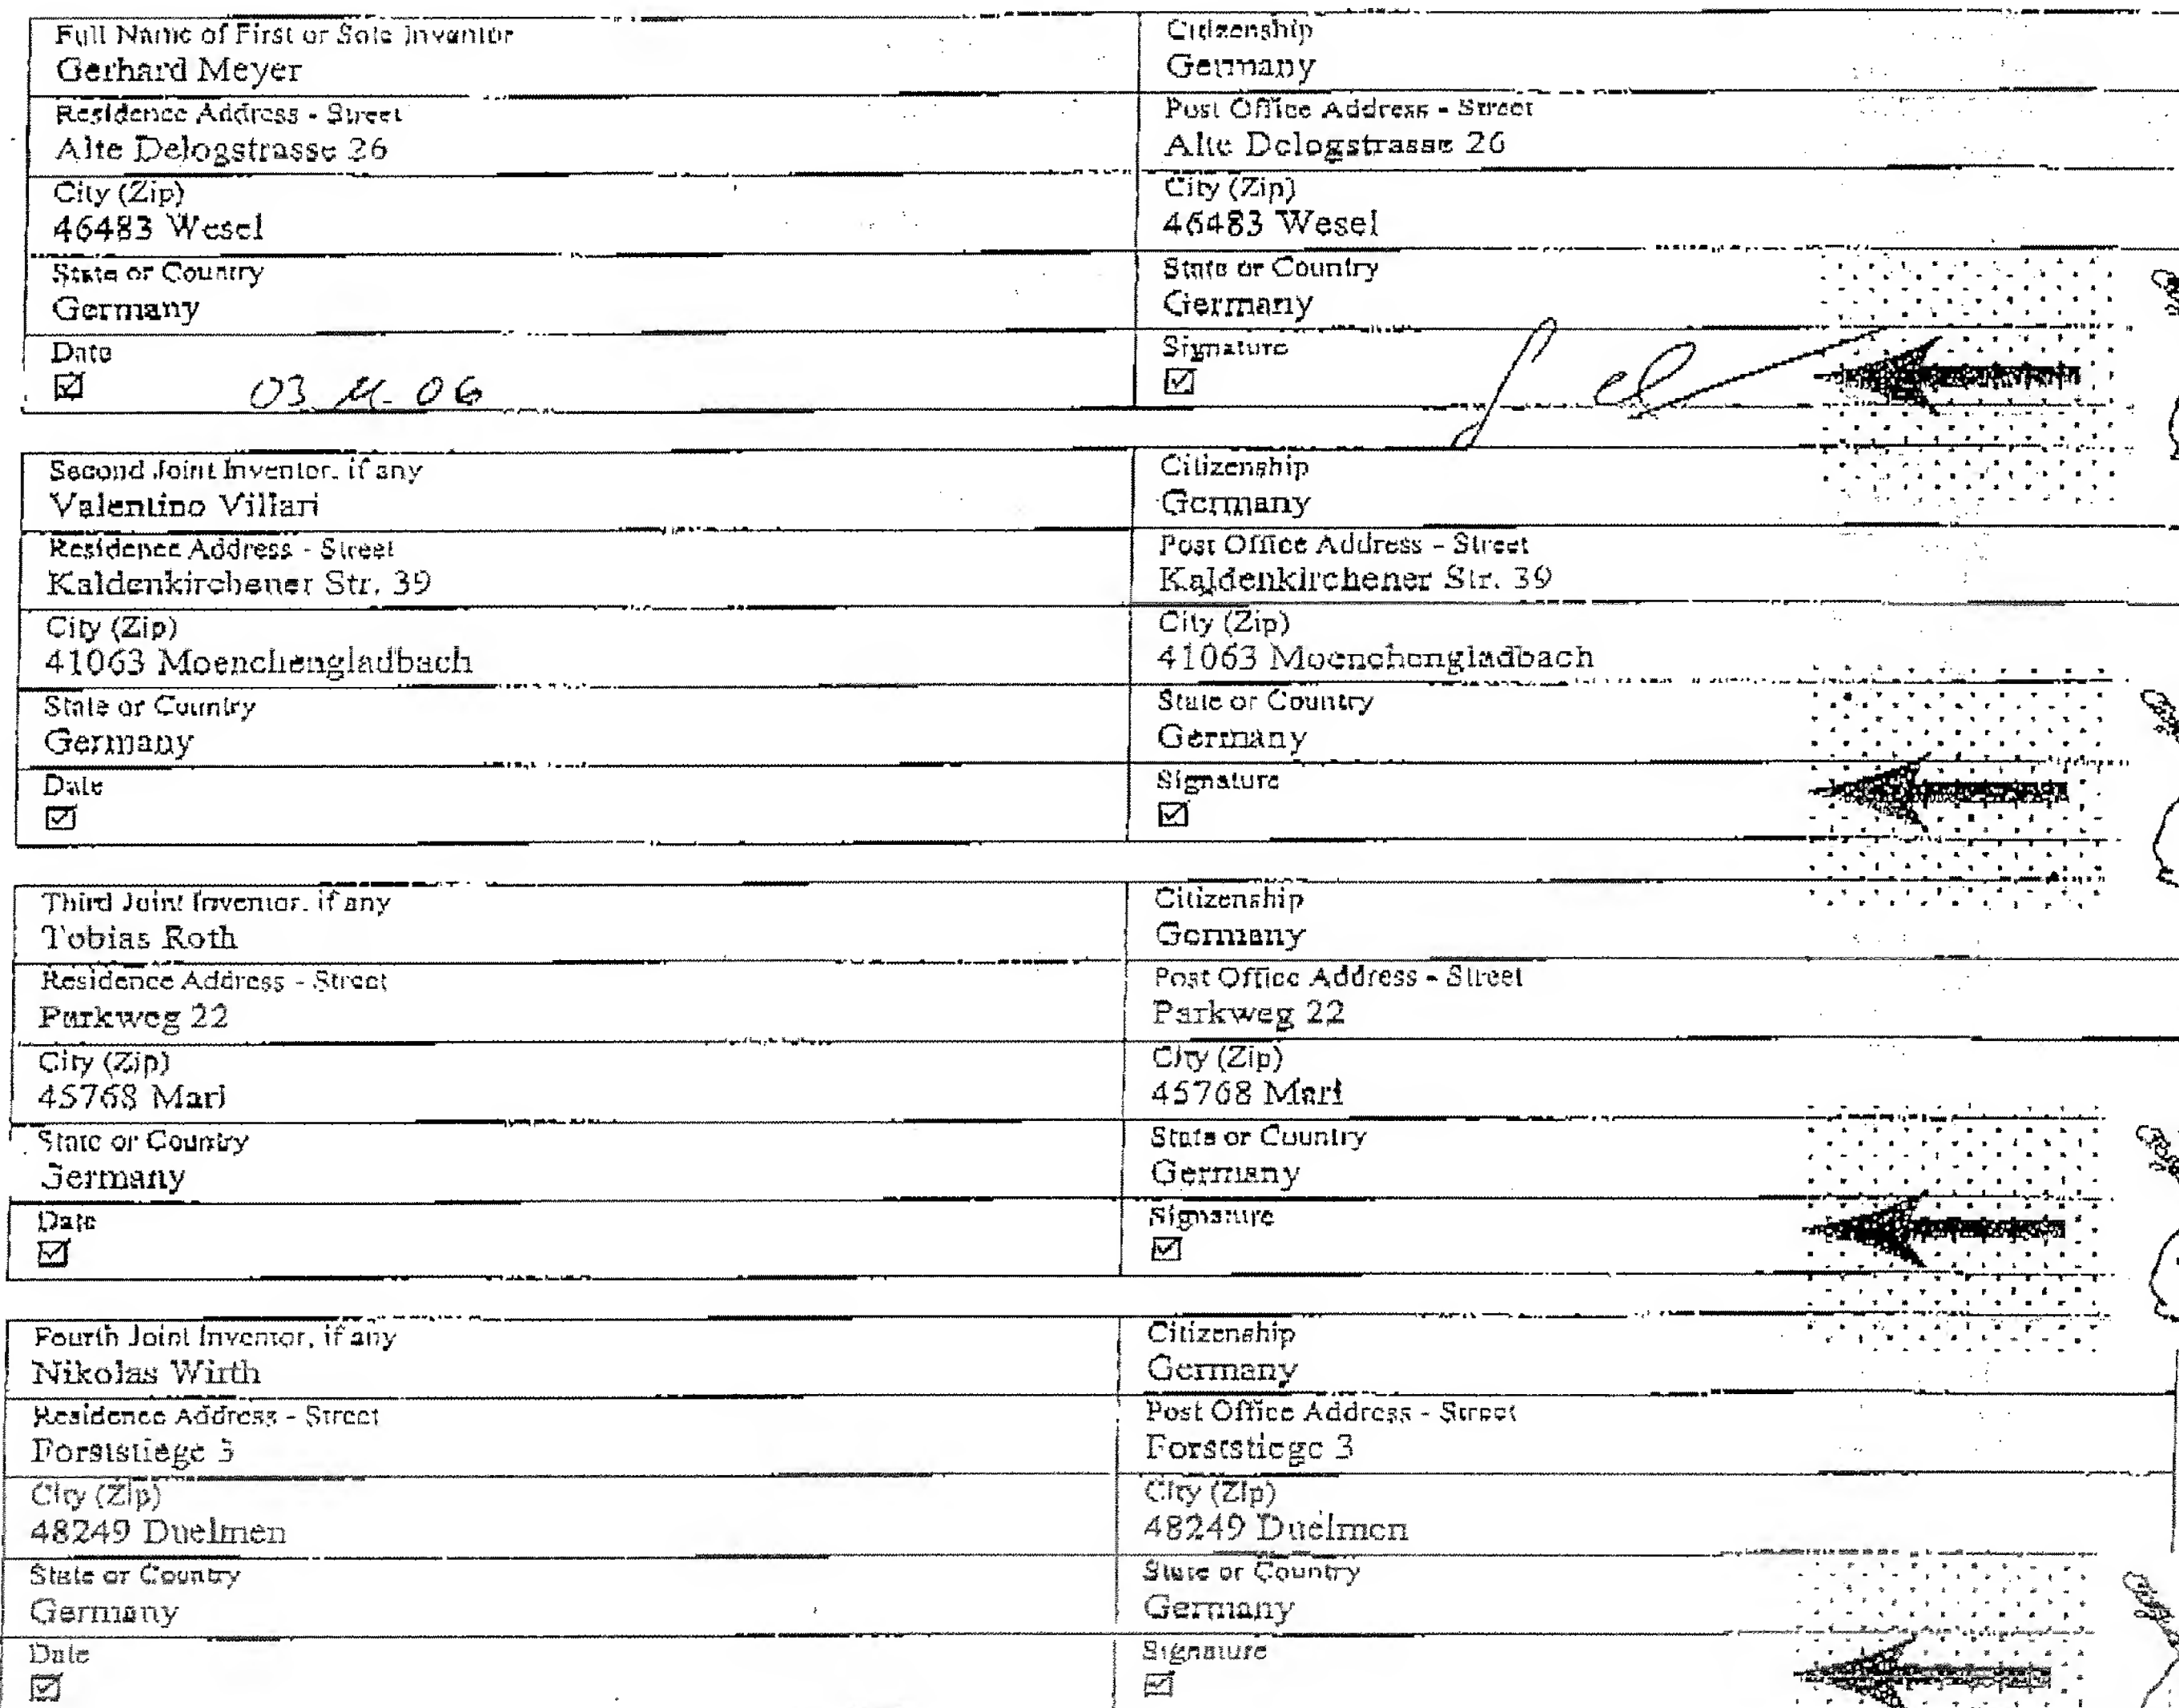 Full Name of First or Sole Inventor
Gerhard Meyer
Citizenship
Germany
Residence Address - Street
Alte Delogstrasse 26
Post Office Address - Street
Alte Delogstrasse 26
City (Zip)
46483 Wesel
City (Zip)
46483 Wesel
State or Country
Germany
State or Country
Germany
Date
☑ 03 11. 06
Signature
☑
Second Joint Inventor, if any
Valentino Villari
Citizenship
Germany
Residence Address - Street
Kaldenkirchener Str. 39
Post Office Address - Street
Kaldenkirchener Str. 39
City (Zip)
41063 Moenchengladbach
City (Zip)
41063 Moenchengladbach
State or Country
Germany
State or Country
Germany
Date
☑
Signature
☑
Third Joint Inventor, if any
Tobias Roth
Citizenship
Germany
Residence Address - Street
Parkweg 22
Post Office Address - Street
Parkweg 22
City (Zip)
45768 Marl
City (Zip)
45768 Marl
State or Country
Germany
State or Country
Germany
Date
☑
Signature
☑
Fourth Joint Inventor, if any
Nikolas Wirth
Citizenship
Germany
Residence Address - Street
Forststiege 3
Post Office Address - Street
Forststiege 3
City (Zip)
48249 Duelmen
City (Zip)
48249 Duelmen
State or Country
Germany
State or Country
Germany
Date
☑
Signature
☑